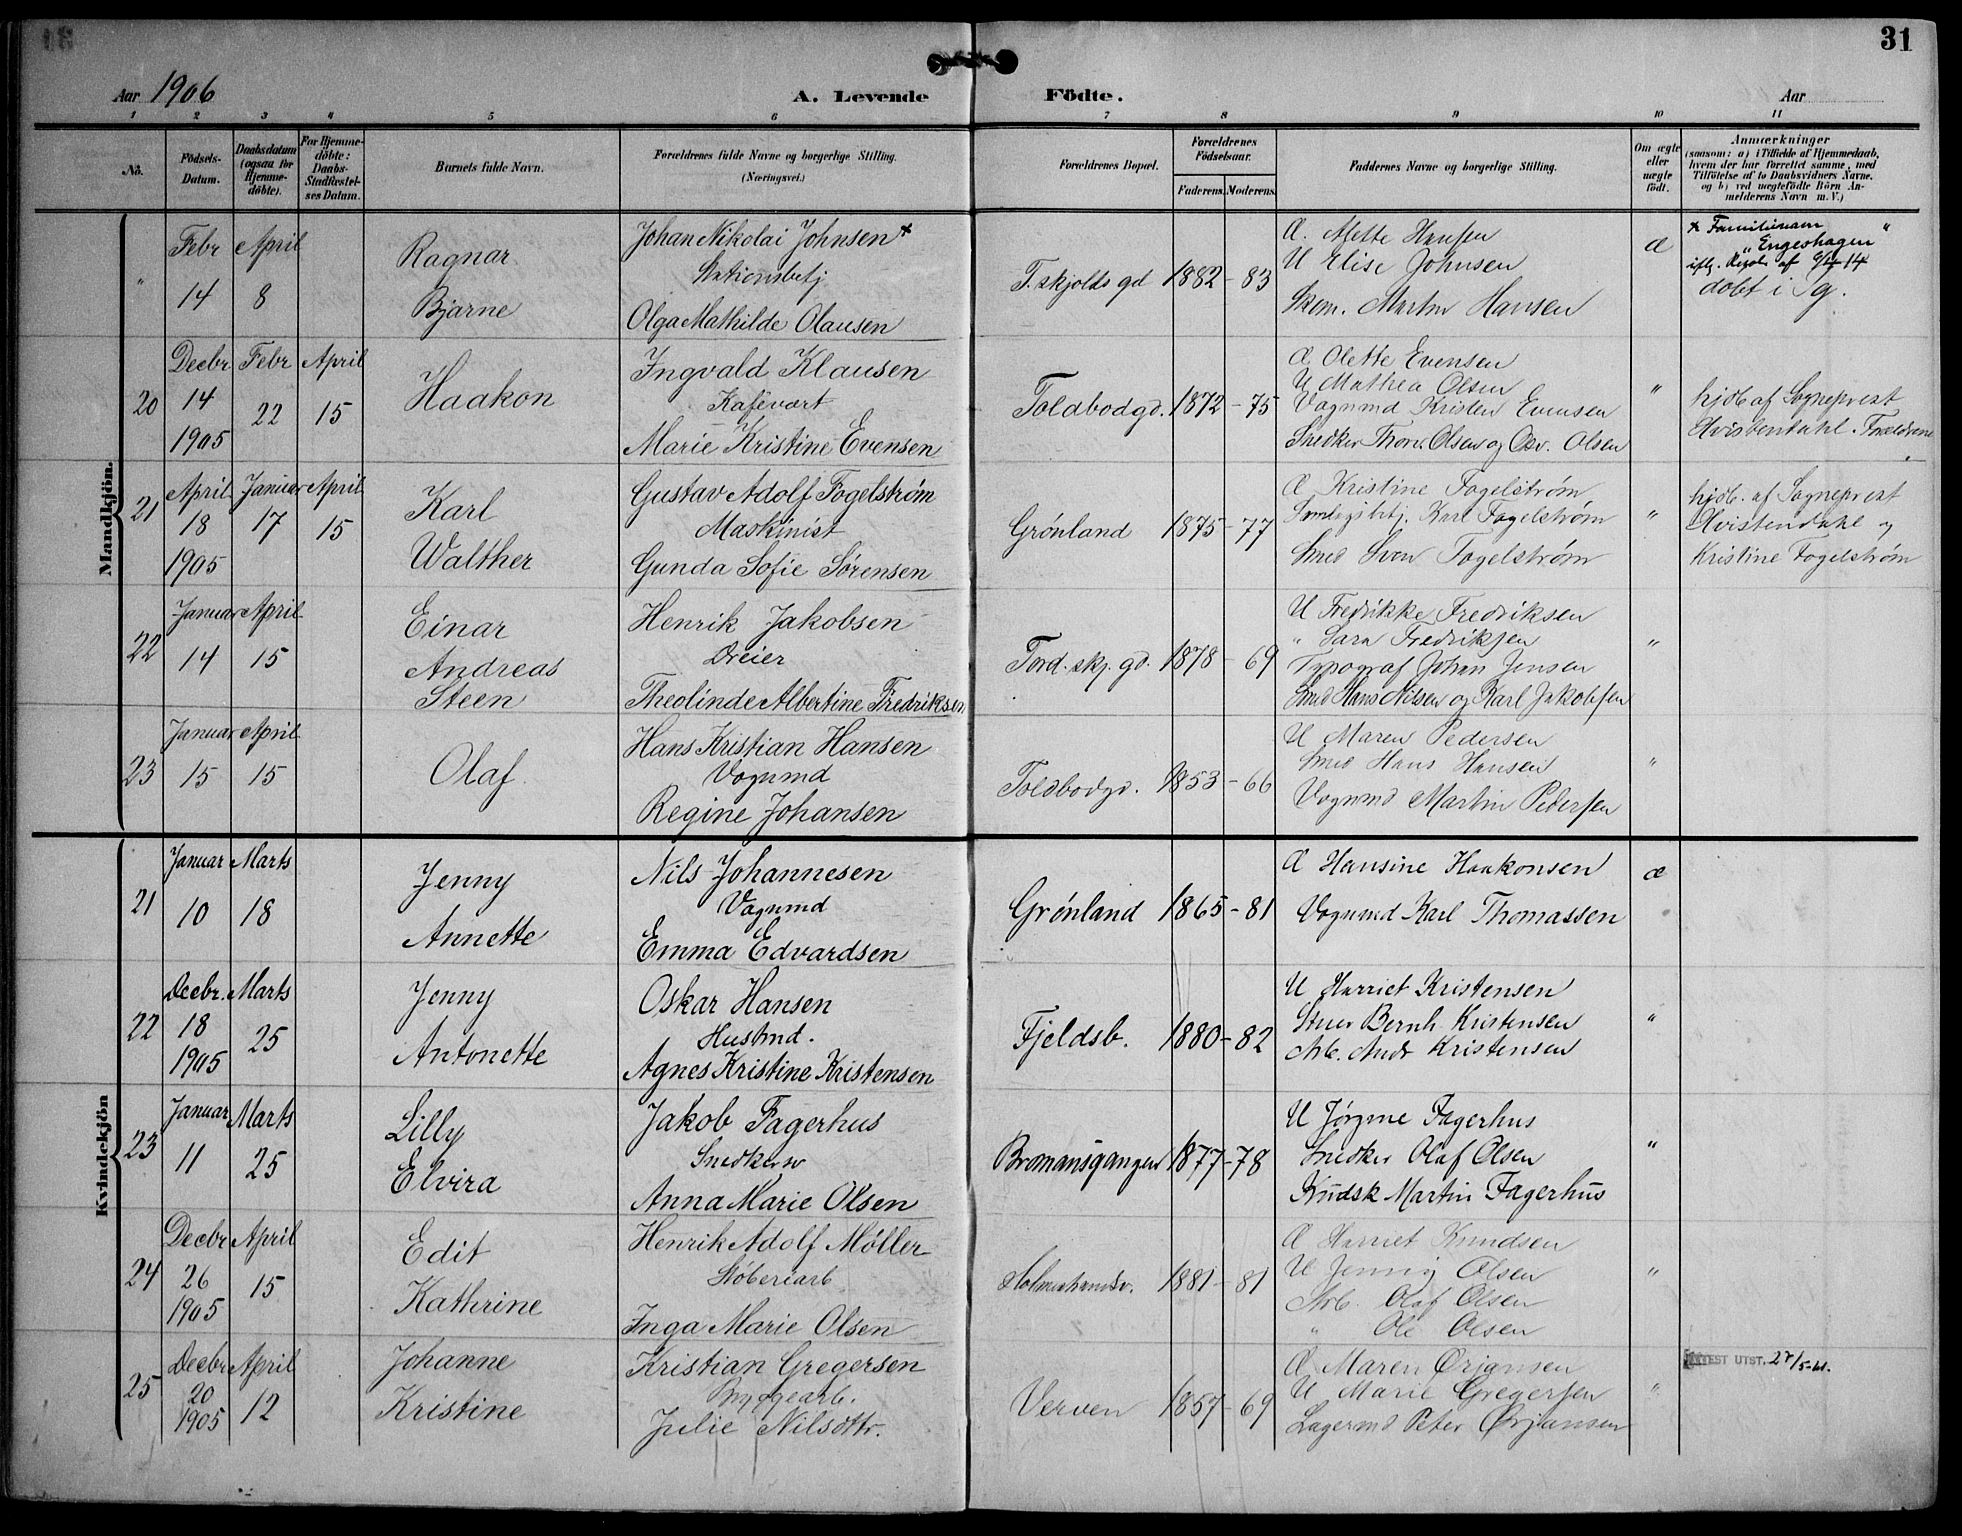 31
Aar 1906
A. Levende
Födte.
Aar
1 2 3 4 5 6 7 8 9 10 11
No.
Födsels-Datum.
Daabsdatum (ogsaa for Hjemme-döbte).
For Hjemme-döbte: Daabs-Stadfæstel-ses Datum.
Barnets fulde Navn.
Forældrenes fulde Navne og borgerlige Stilling.
(Næringsvei.)
Forældrenes Bopæl.
Forældrenes Födselsaar.
Faderens. Moderens.
Faddernes Navne og borgerlige Stilling.
Om ægte eller uægte födt.
Anmærkninger
(saasom: a) i Tilfælde af Hjemmedaab,
hvem der har forrettet samme, med
Tilföielse af to Daabsvidners Navne,
og b) ved uægtefödte Börn An-
melderens Navn m. V.)
Mandkjön.
" Febr 14 April 8
Ragnar Bjarne
Johan Nikolai Johnsen x
Stationsbetj
Olga Mathilde Olausen
T. skjolds gd 1882 - 83
Æ. Mette Hansen
U Elise Johnsen
Skom. Martin Hansen
æ
x Familienavn
"Engeshagen"
iflg. af 9/12 14
döbt i Sg.
20 Decbr 14 1905 Febr 22 April 15
Haakon
Ingvald Klausen
Kafévært
Marie Kristine Evensen
Toldbodgd. 1872 - 75
Æ Olette Evensen
U Mathea Olsen
Vognmd Kristen Evensen
Snedker Thorv. Olsen og Osv. Olsen
"
hjdb af Sogneprest
Hvistendahl. Forældrene
21 April 18 1905 Januar 17 April 15
Karl Walther
Gustav Adolf Fogelström
Maskinist
Gunda Sofie Sørensen
Grønland 1875 - 77
Æ Kristine Fogelstrøm
Karl Fogelstrøm
Smed Sven Fogelstrøm
"
hjdb. af Sogneprest
Hvistendahl og
Kristine Fogelstrøm
22 Januar 14 April 15
Einar Andreas Steen
Henrik Jakobsen
Dreier
Theolinde Albertine Fredriksen
Tord. skj. gd. 1878 - 69
U Fredrikke Fredriksen
" Sara Fredriksen
Typograf Johan Jensen
Smed Hans Nilsen og Karl Jakobsen
"
23 Januar 15 April 15
Olaf.
Hans Kristian Hansen
Vognmd
Regine Johansen
Toldbodgd. 1853 - 66
U Maren Pedersen
Smed Hans Hansen
Vognmd Martin Pedersen
"
Kvindekjön
21 Januar 10 Marts 18
Jenny Annette
Nils Johannesen
Vognmd
Emma Edvardsen
Grønland 1865 - 81
Æ Hansine Haakonsen
Vognmd Karl Thomassen
æ
22 Decbr. 18 1905 Marts 25
Jenny Antonette
Oskar Hansen
Hustmd.
Agnes Kristine Kristensen
Fjeldsb. 1880 - 82
U Harriet Kristensen
Stuer Bernh Kristensen
Arb. Andr Kristensen
"
23 Januar 11 Marts 25
Lilly Elvira
Jakob Fagerhus
Snedkersv
Anna Marie Olsen
Bromansgangen 1877 - 78
U Jørgine Fagerhus
Snedker Olaf Olsen
Kudsk Martin Fagerhus
"
24 Decbr 26 1905 April 15
Edit Kathrine
Henrik Adolf Møller
Støberiarb
Inga Marie Olsen
1881 - 81
Æ Harriet Knudsen
U Jenny Olsen
Arb. Olaf Olsen
" Ole Olsen
"
25 Decbr 20 1905 April 12
Johanne Kristine
Kristian Gregersen
Bryggearb.
Julie Nilsdttr.
Verven 1857 - 69
Æ Maren Ørjansen
U Marie Gregersen
Lagermd Peter Ørjansen
"
ATTEST UTST. 27/5-61.